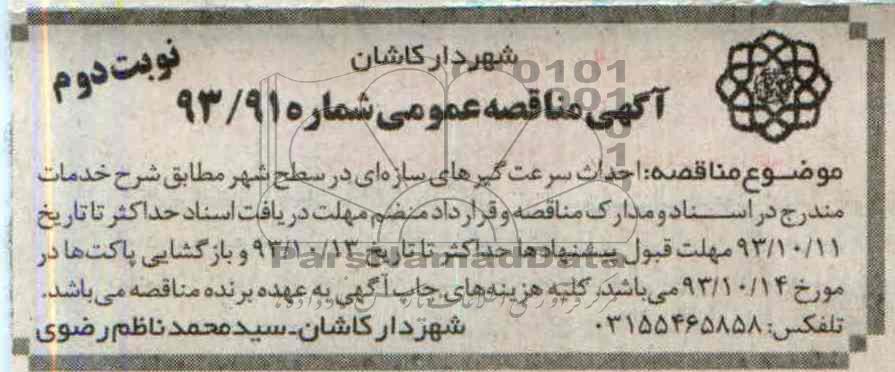 شهردار کاشان
نوبت دوم
آگهی مناقصه عمومی شماره ۹۳/۹۱
موضوع مناقصه: احداث سرعت گیرهای سازه‌ای در سطح شهر مطابق شرح خدمات
مندرج در اسناد و مدارک مناقصه و قرارداد منضم مهلت دریافت اسناد حداکثر تا تاریخ
۹۳/۱۰/۱۱ مهلت قبول پیشنهادها حداکثر تا تاریخ ۹۳/۱۰/۱۳ و بازگشایی پاکت‌ها در
مورخ ۹۳/۱۰/۱۴ می‌باشد. کلیه هزینه‌های چاپ آگهی به عهده برنده مناقصه می‌باشد.
تلفکس: ۰۳۱۵۵۴۶۵۸۵۸
شهردار کاشان - سید محمد ناظم رضوی
ParsNamadData